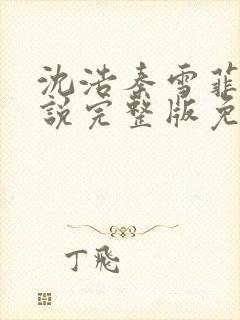 沈浩秦雪菲
说完整版免
丁飛